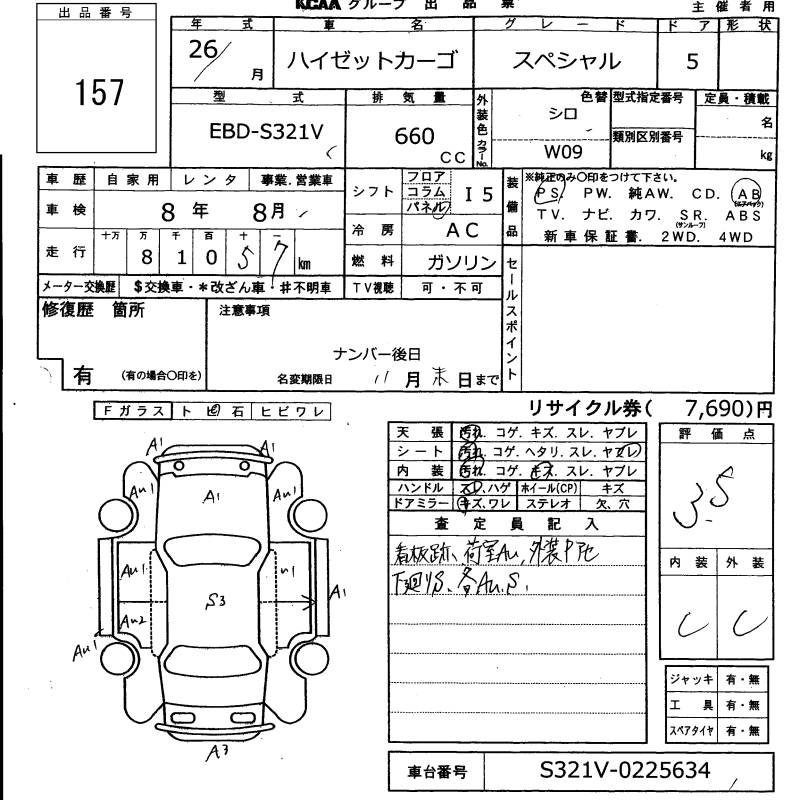 KCAA グループ 出 品 票 主催者用
出品番号 年 式 車 名 グ レ ー ド ド ア 形 状
157 26/ 月 ハイゼットカーゴ スペシャル 5
型 式 排 気 量 外装色 カラーNo. 色替 型式指定番号 定員・積載
EBD-S321V 660 CC シロ W09 類別区別番号 名 kg
車 歴 自家用 レンタ 事業.営業車 シフト フロア コラム パネル I 5 装備品 ※純正のみ〇印をつけて下さい。
車 検 8 年 8月 PS. PW. 純AW. CD. AB (エアバック)
冷 房 AC TV. ナビ. カワ. SR. ABS (サンルーフ)
走 行 十万 万 千 百 十 一 8 1 0 5 7 km 新車保証書. 2WD. 4WD
燃 料 ガソリン セールスポイント
メーター交換歴 $交換車・*改ざん車・#不明車 TV視聴 可・不可
修復歴 箇所 注意事項
ナンバー後日
有 (有の場合〇印を) 名変期限日 11月末日まで
リサイクル券( 7,690)円
Fガラス ト ビ 石 ヒビワレ
天 張 汚れ. コゲ. キズ. スレ. ヤブレ 評 価 点
シート 汚れ. コゲ. ヘタリ. スレ. ヤブレ 3.5
内 装 汚れ. コゲ. キズ. スレ. ヤブレ
ハンドル スレ.ハゲ ホイール(CP) キズ
ドアミラー キズ.ワレ ステレオ 欠、穴
査 定 員 記 入
看板跡、荷室AU、外装
下廻りS、各AU.S.
内 装 外 装
C C
A1 A1
AU1 A1 AU1
AU1 U1
S3 A1
AU2
AU1
A3
ジャッキ 有・無
工 具 有・無
スペアタイヤ 有・無
車台番号 S321V-0225634